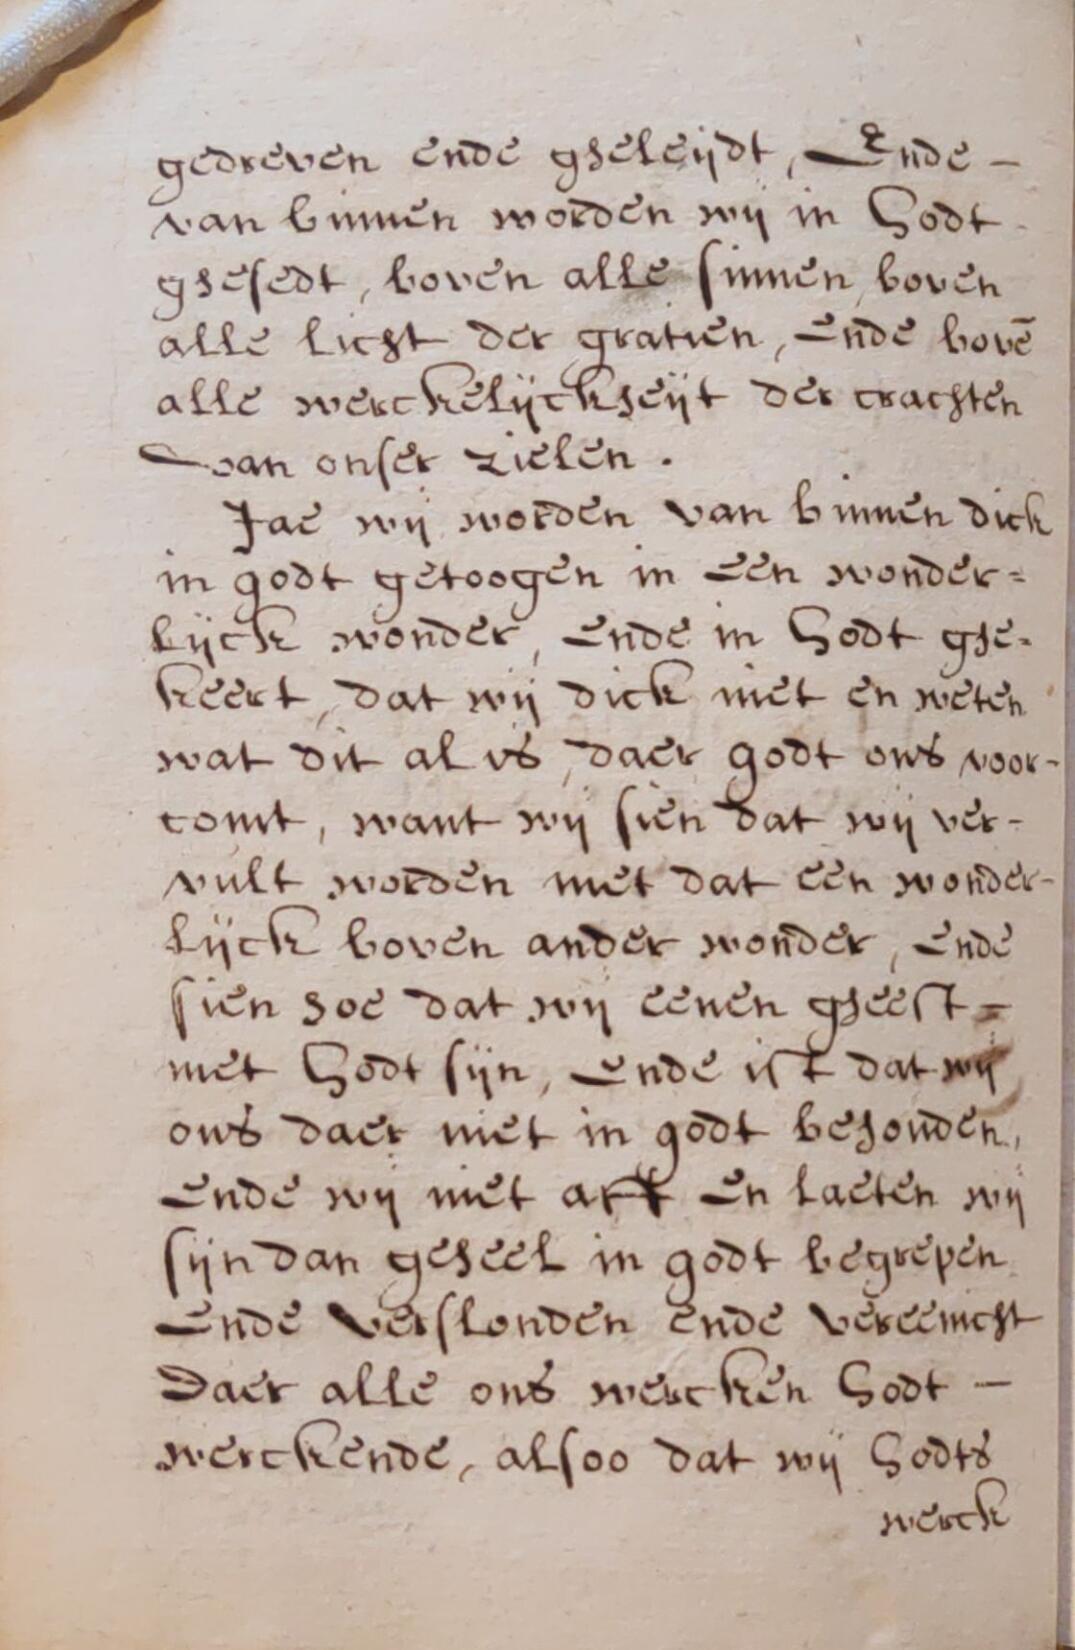 gedreven ende gheleijdt, Ende –
van binnen worden wij in Godt
ghesedt, boven alle sinnen, boven
alle licht der gratien, ende bovē
alle werckelijckheijt der crachten
van onser zielen.
Jae wij worden van binnen dick
in godt getoogen in een wonder=
lijck wonder, ende in Godt ghe=
keert, dat wij dick niet en weten
wat dit al is, daer godt ons voor-
comt, want wij sien dat wij ver-
vult worden met dat een wonder-
lijck boven ander wonder, ende
sien hoe dat wij eenen gheest=
met Godt sijn, ende ist dat wij
ons daer niet in godt behouden,
ende wij niet aff en laeten wij
sijn dan geheel in godt begrepen
ende verslonden ende vereenicht
Daer alle ons wercken Godt –
werckende, alsoo dat wij Godts
werck